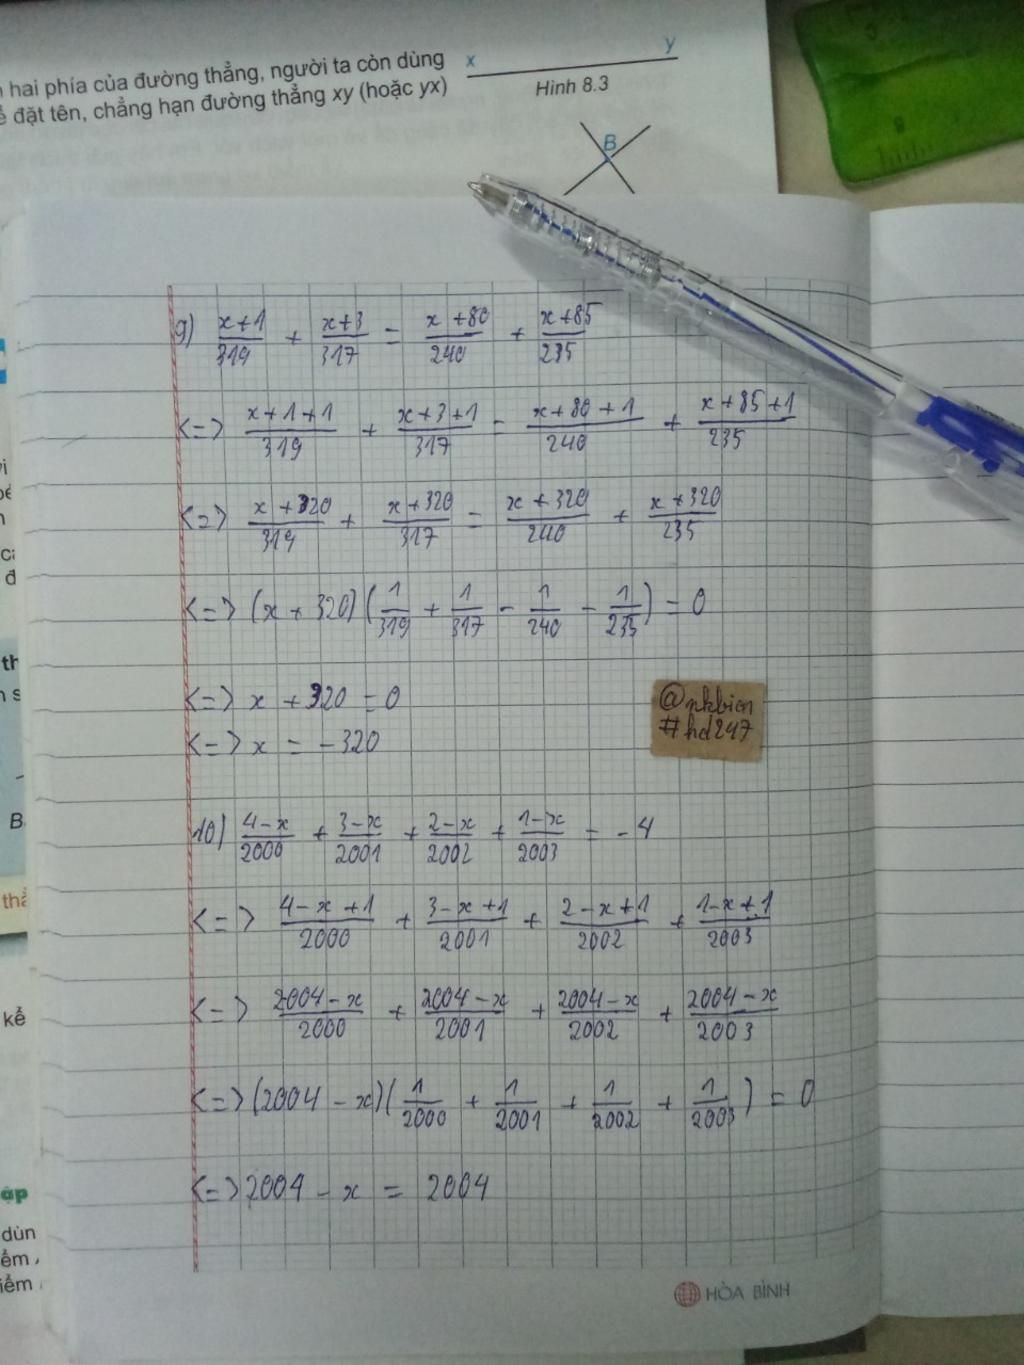 hai phía của đường thẳng, người ta còn dùng
đặt tên, chẳng hạn đường thẳng xy (hoặc yx)
x y
Hình 8.3
B
9) \frac{x+1}{319} + \frac{x+3}{317} = \frac{x+80}{240} + \frac{x+85}{235}
<=> \frac{x+1+1}{319} + \frac{x+3+1}{317} = \frac{x+80+1}{240} + \frac{x+85+1}{235}
<=> \frac{x+320}{319} + \frac{x+320}{317} = \frac{x+320}{240} + \frac{x+320}{235}
<=> (x+320)(\frac{1}{319} + \frac{1}{317} - \frac{1}{240} - \frac{1}{235}) = 0
<=> x + 320 = 0
<=> x = -320
@nkbien
#hd247
10) \frac{4-x}{2000} + \frac{3-x}{2001} + \frac{2-x}{2002} + \frac{1-x}{2003} = -4
<=> \frac{4-x+1}{2000} + \frac{3-x+1}{2001} + \frac{2-x+1}{2002} + \frac{1-x+1}{2003}
<=> \frac{2004-x}{2000} + \frac{2004-x}{2001} + \frac{2004-x}{2002} + \frac{2004-x}{2003}
<=> (2004-x)(\frac{1}{2000} + \frac{1}{2001} + \frac{1}{2002} + \frac{1}{2003}) = 0
<=> 2004 - x = 2004
HÒA BÌNH
B
kể